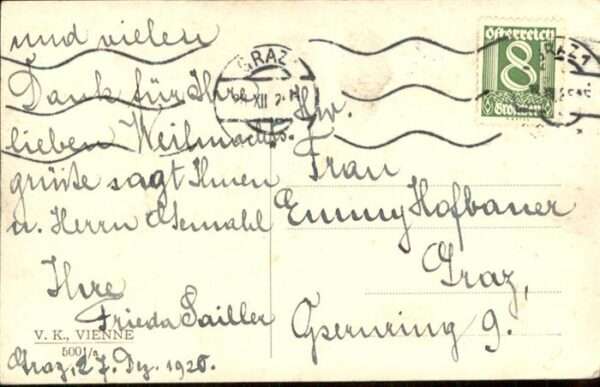 und vielen
Dank für Ihre
lieben Weihnachts-
grüße sagt Ihnen
u. Herrn Gemahl
Ihre
Frieda Sailler
V. K., VIENNE
500
Graz, 27. Dez. 192
Österreich
8
Groschen
GRAZ
XII
GRAZ
Frau
Emmy Hofbauer
Graz,
Opernring 9.